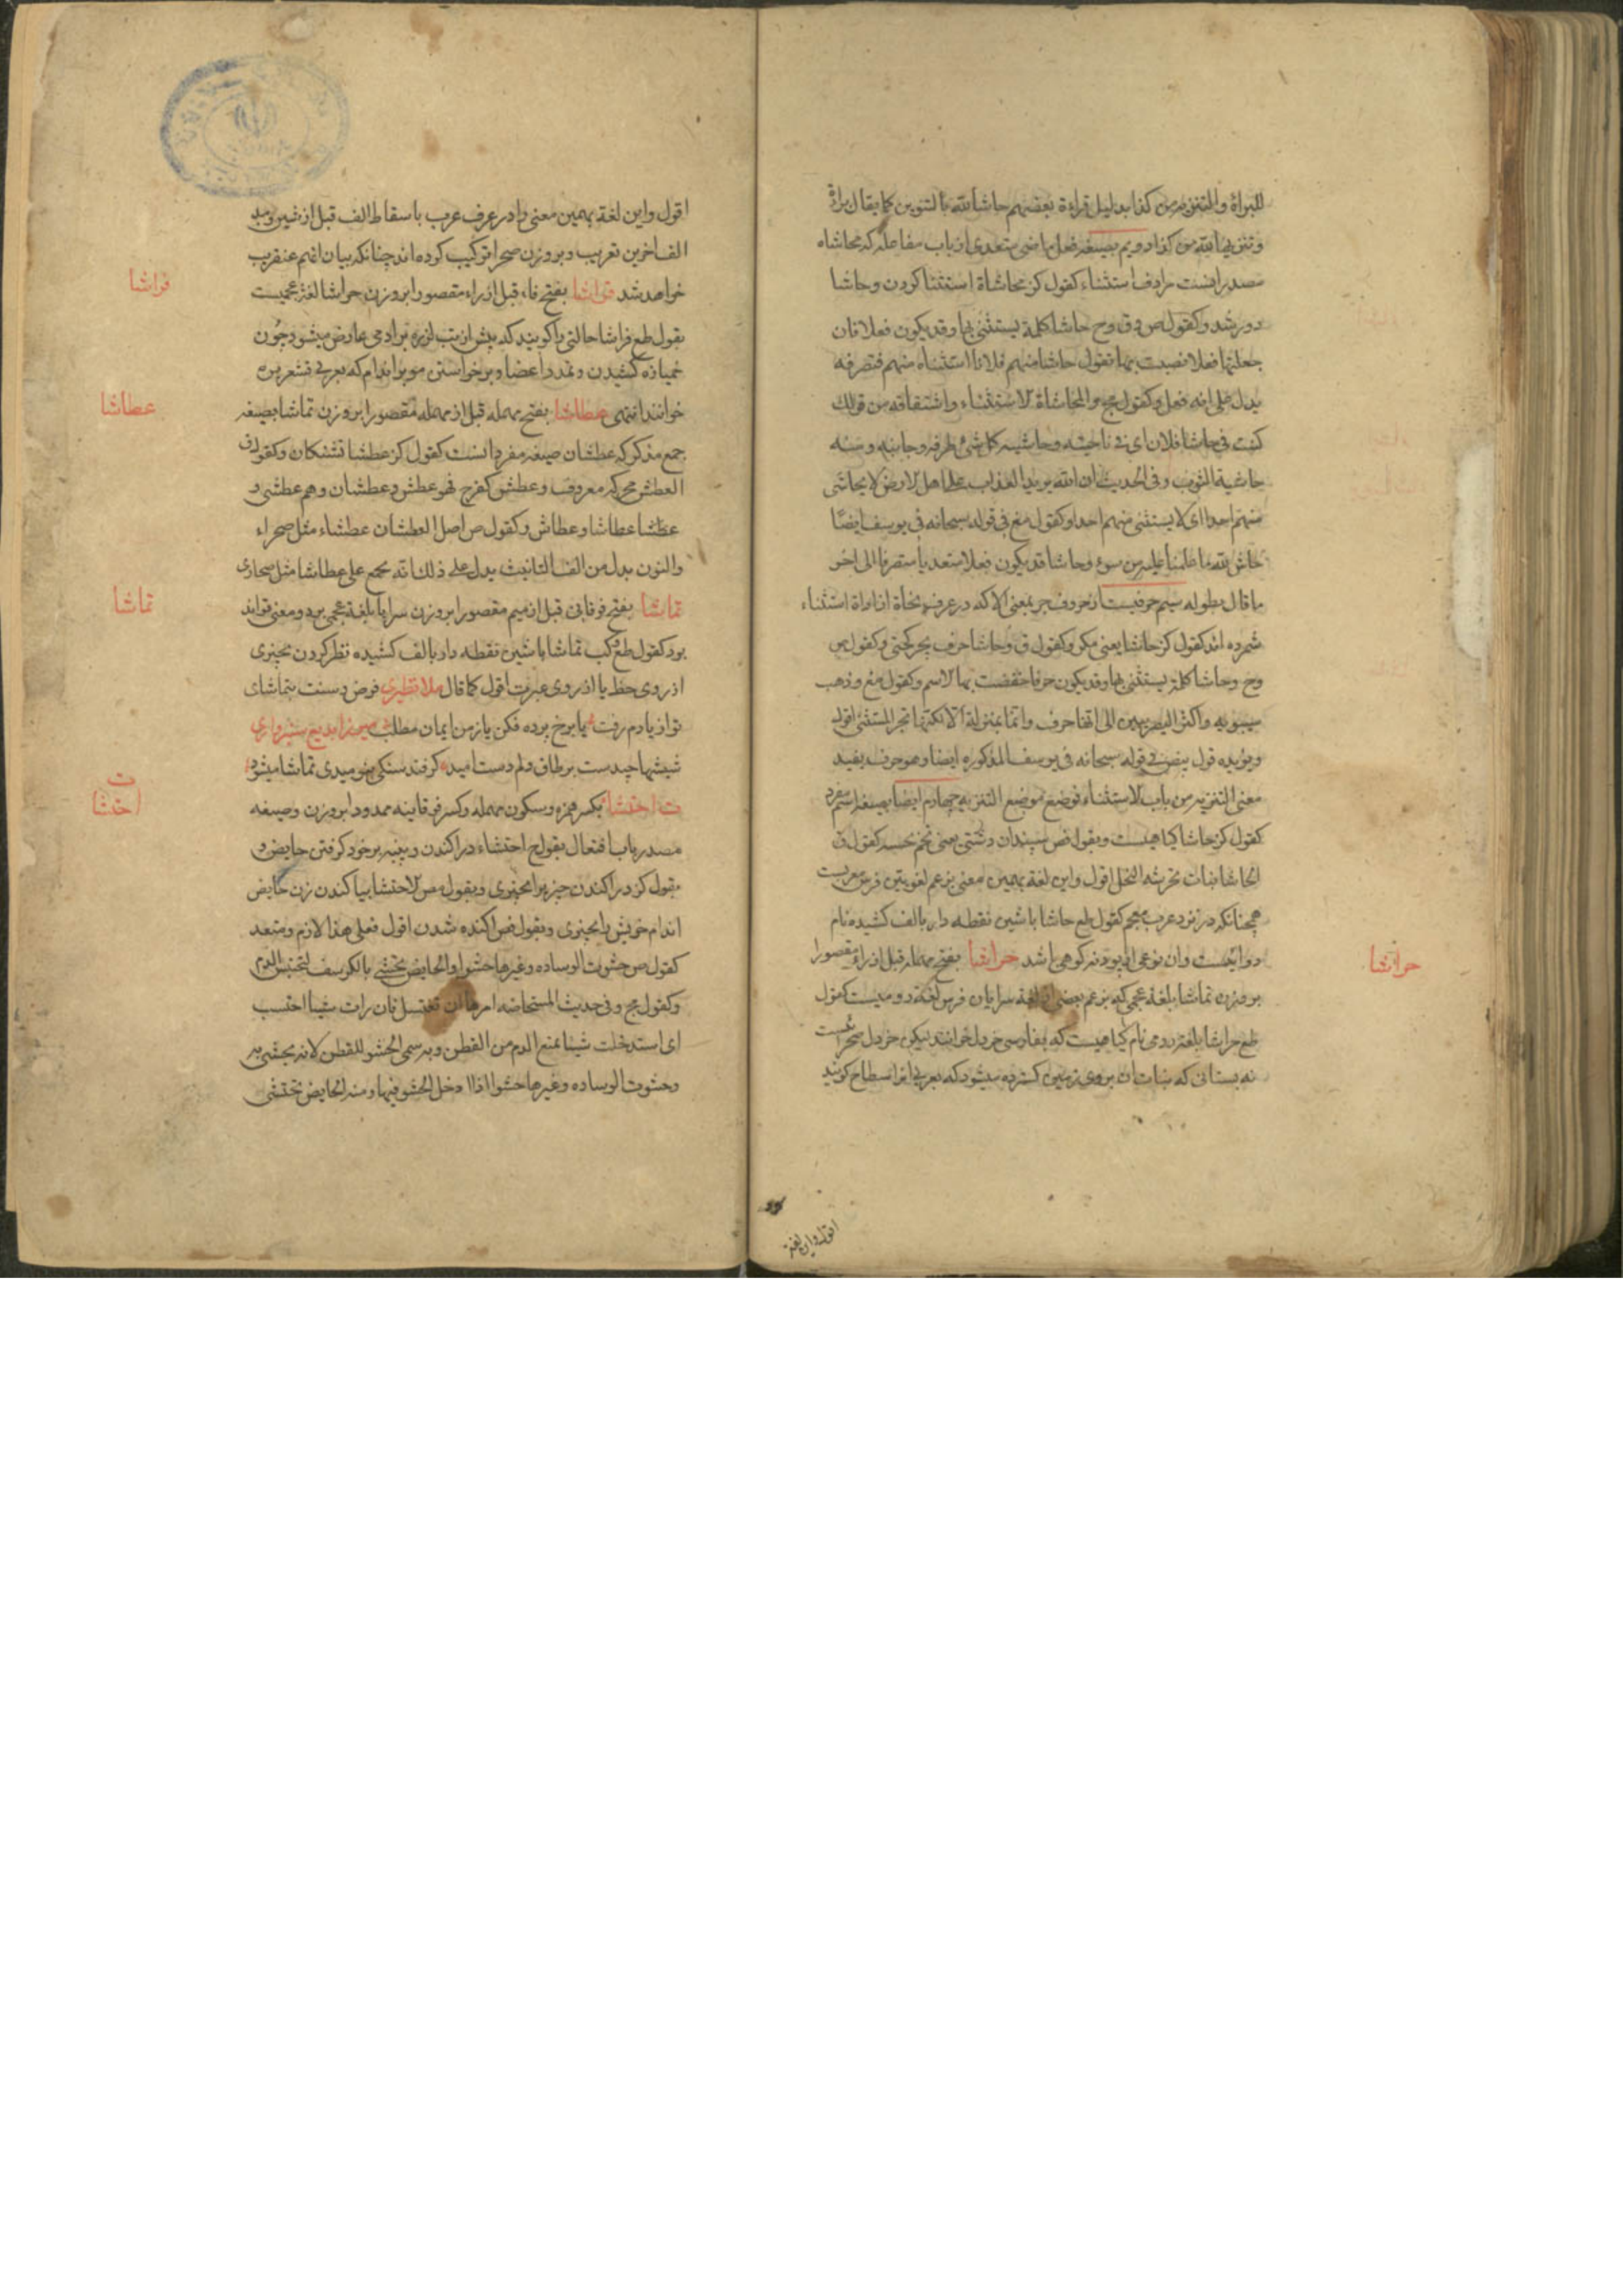 للبراءة والتنزیه من کذا بدلیل قراءة بعضهم حاشا لله بالتنوین کما یقال براءة
وتنزیها لله من کذا دویم بصیغه فعل ماضی متعدی از باب مفاعله که محاشاه
مصدر انست مرادف استثناء کقول کنز محاشاة استثنا کردن وحاشا
دور شد وکقول ص وق وح حاشا کلمة یستثنی بها وقد یکون فعلا فان
جعلتها فعلا نصبت بها فتقول حاشا منهم فلانا استثناه منهم فتصرفه
یدل علی انه فعل وکقول مج والمحاشاة الاستثناء واشتقاقه من قولک
کنت فی حاشا فلان ای فی ناحیته وحاشیه کل شئ طرفه وجانبه ومنه
حاشیة الثوب وفی الحدیث ان الله یرید العذاب علی اهل الارض لا یحاشی
منهم احدا ای لا یستثنی منهم احدا وکقول مغ فی قوله سبحانه فی یوسف ایضا
حاش لله ما علمنا علیه من سوء وحاشا قد یکون فعلا متعدیا متصرفا الی اخر
ما قال بطوله سیم حرفیست از حروف جر بمعنی الا که در عرف نحاة از اداة استثناء
شمرده اند کقول کنز حاشا یعنی مکر وکقول ق وحاشا حرف یجر کحتی وکقول ص
وح وحاشا کلمة یستثنی بها وقد یکون حرفا خفضت بها الاسم وکقول مغ وذهب
سیبویه واکثر البصریین الی انها حرف وانما بمنزلة الا لکنها تجر المستثنی اقول
ویؤیده قول بیض فی قوله سبحانه فی یوسف المذکوره ایضا وهو حرف یفید
معنی التنزیه من باب الاستثناء فوضع موضع التنزیه چهارم ایضا بصیغه اسم مفرد
کقول کنز حاشا کیاهیست وبقول فص سپندان دشتی یعنی تخم کقول ق
الحاشا نبات تجرسه النحل اقول واین لغة بهمین معنی بزعم لغویین فرس معربست
همچنانکه در نزد عرب عجم کقول طع حاشا با شین نقطه دار بالف کشیده نام
دوائیست وان نوعی از پودنه کوهی باشد حراشا بفتح مهمله قبل از راء مقصورا
بر وزن تماشا بلغة عجمی که بزعم بعضی از لغة سرایان فرس لغة رومیست کقول
طع حراشا بلغة رومی نام کیاهیست که بفارسی خردل خوانند لیکن خردل صحرائیست
نه بستانی که نبات ان بروی زمین کسترده میشود که بعربی انرا سطاح کویند
حراشا
اقول واین لغة
اقول واین لغة بهمین معنی را در عرف عرب باسقاط الف قبل از شین ومد
الف اخرین تعریب وبر وزن صحرا ترکیب کرده اند چنانکه بیان انهم عنقریب
خواهد شد فراشا بفتح فاء قبل از راء مقصورا بر وزن حراشا لغة عجمیست
بقول طع فراشا حالتی را کویند که پیش از تب لرزه بر ادمی عارض میشود چون
خمیازه کشیدن وتمدد اعضا وبرخواستن مو بر اندام که بعربی قشعریره
خوانند انتهی عطاشا بفتح مهمله قبل از مهمله مقصورا بر وزن تماشا بصیغه
جمع مذکر که عطشان صیغه مفرد انست کقول کنز عطشا تشنکان وکقول ق
العطش محرکه معروف وعطش کفرح فهو عطش وعطشان وهم عطشی و
عطشا عطاشا وعطاش وکقول ص اصل العطشان عطشاء مثل صحراء
والنون بدل من الف التانیث یدل علی ذلک انه یجمع علی عطاشا مثل صحاری
تماشا بفتح فوقانی قبل از میم مقصورا بر وزن سراپا بلغة عجمی بر دو معنی تواند
بود کقول طع وکب تماشا با شین نقطه دار بالف کشیده نظر کردن بچیزی
از روی حظ یا از روی عبرت اقول کما قال ملا نظیری فرض وسنت بتماشای
تو از یادم رفت یا برخ پرده فکن یا ز من ایمان مطلب میرزا بدیع سبزواری
شیشها چید ست بر طاق دلم دست امید کر فتد سنکی نومیدی تماشا میشود
ت احتشا بکسر همزه وسکون مهمله وکسر فوقانیه ممدودا بر وزن وصیغه
مصدر باب افتعال بقول ج احتشاء در اکندن وپنبه بر خود کرفتن حایض و
بقول کنز در اکندن چیزی را بچیزی وبقول مص الاحتشا بیاکندن زن حایض
اندام خویش را بچیزی وبقول فص اکنده شدن اقول فعلی هذا لازم ومتعد
کقول ص حشوت الوساده وغیرها حشوا والحایض تحتشی بالکرسف لتحبس الدم
وکقول مج وفی حدیث المستحاضه امرها ان تغتسل فان رات شیئا احتشت
ای استدخلت شیئا یمنع الدم من القطن وبه سمی الحشو للقطن لانه یحشی به
وحشوت الوساده وغیرها حشوا اذا ادخل الحشو فیها ومنه الحایض تحتشی
فراشا
عطاشا
تماشا
ت
احتشا